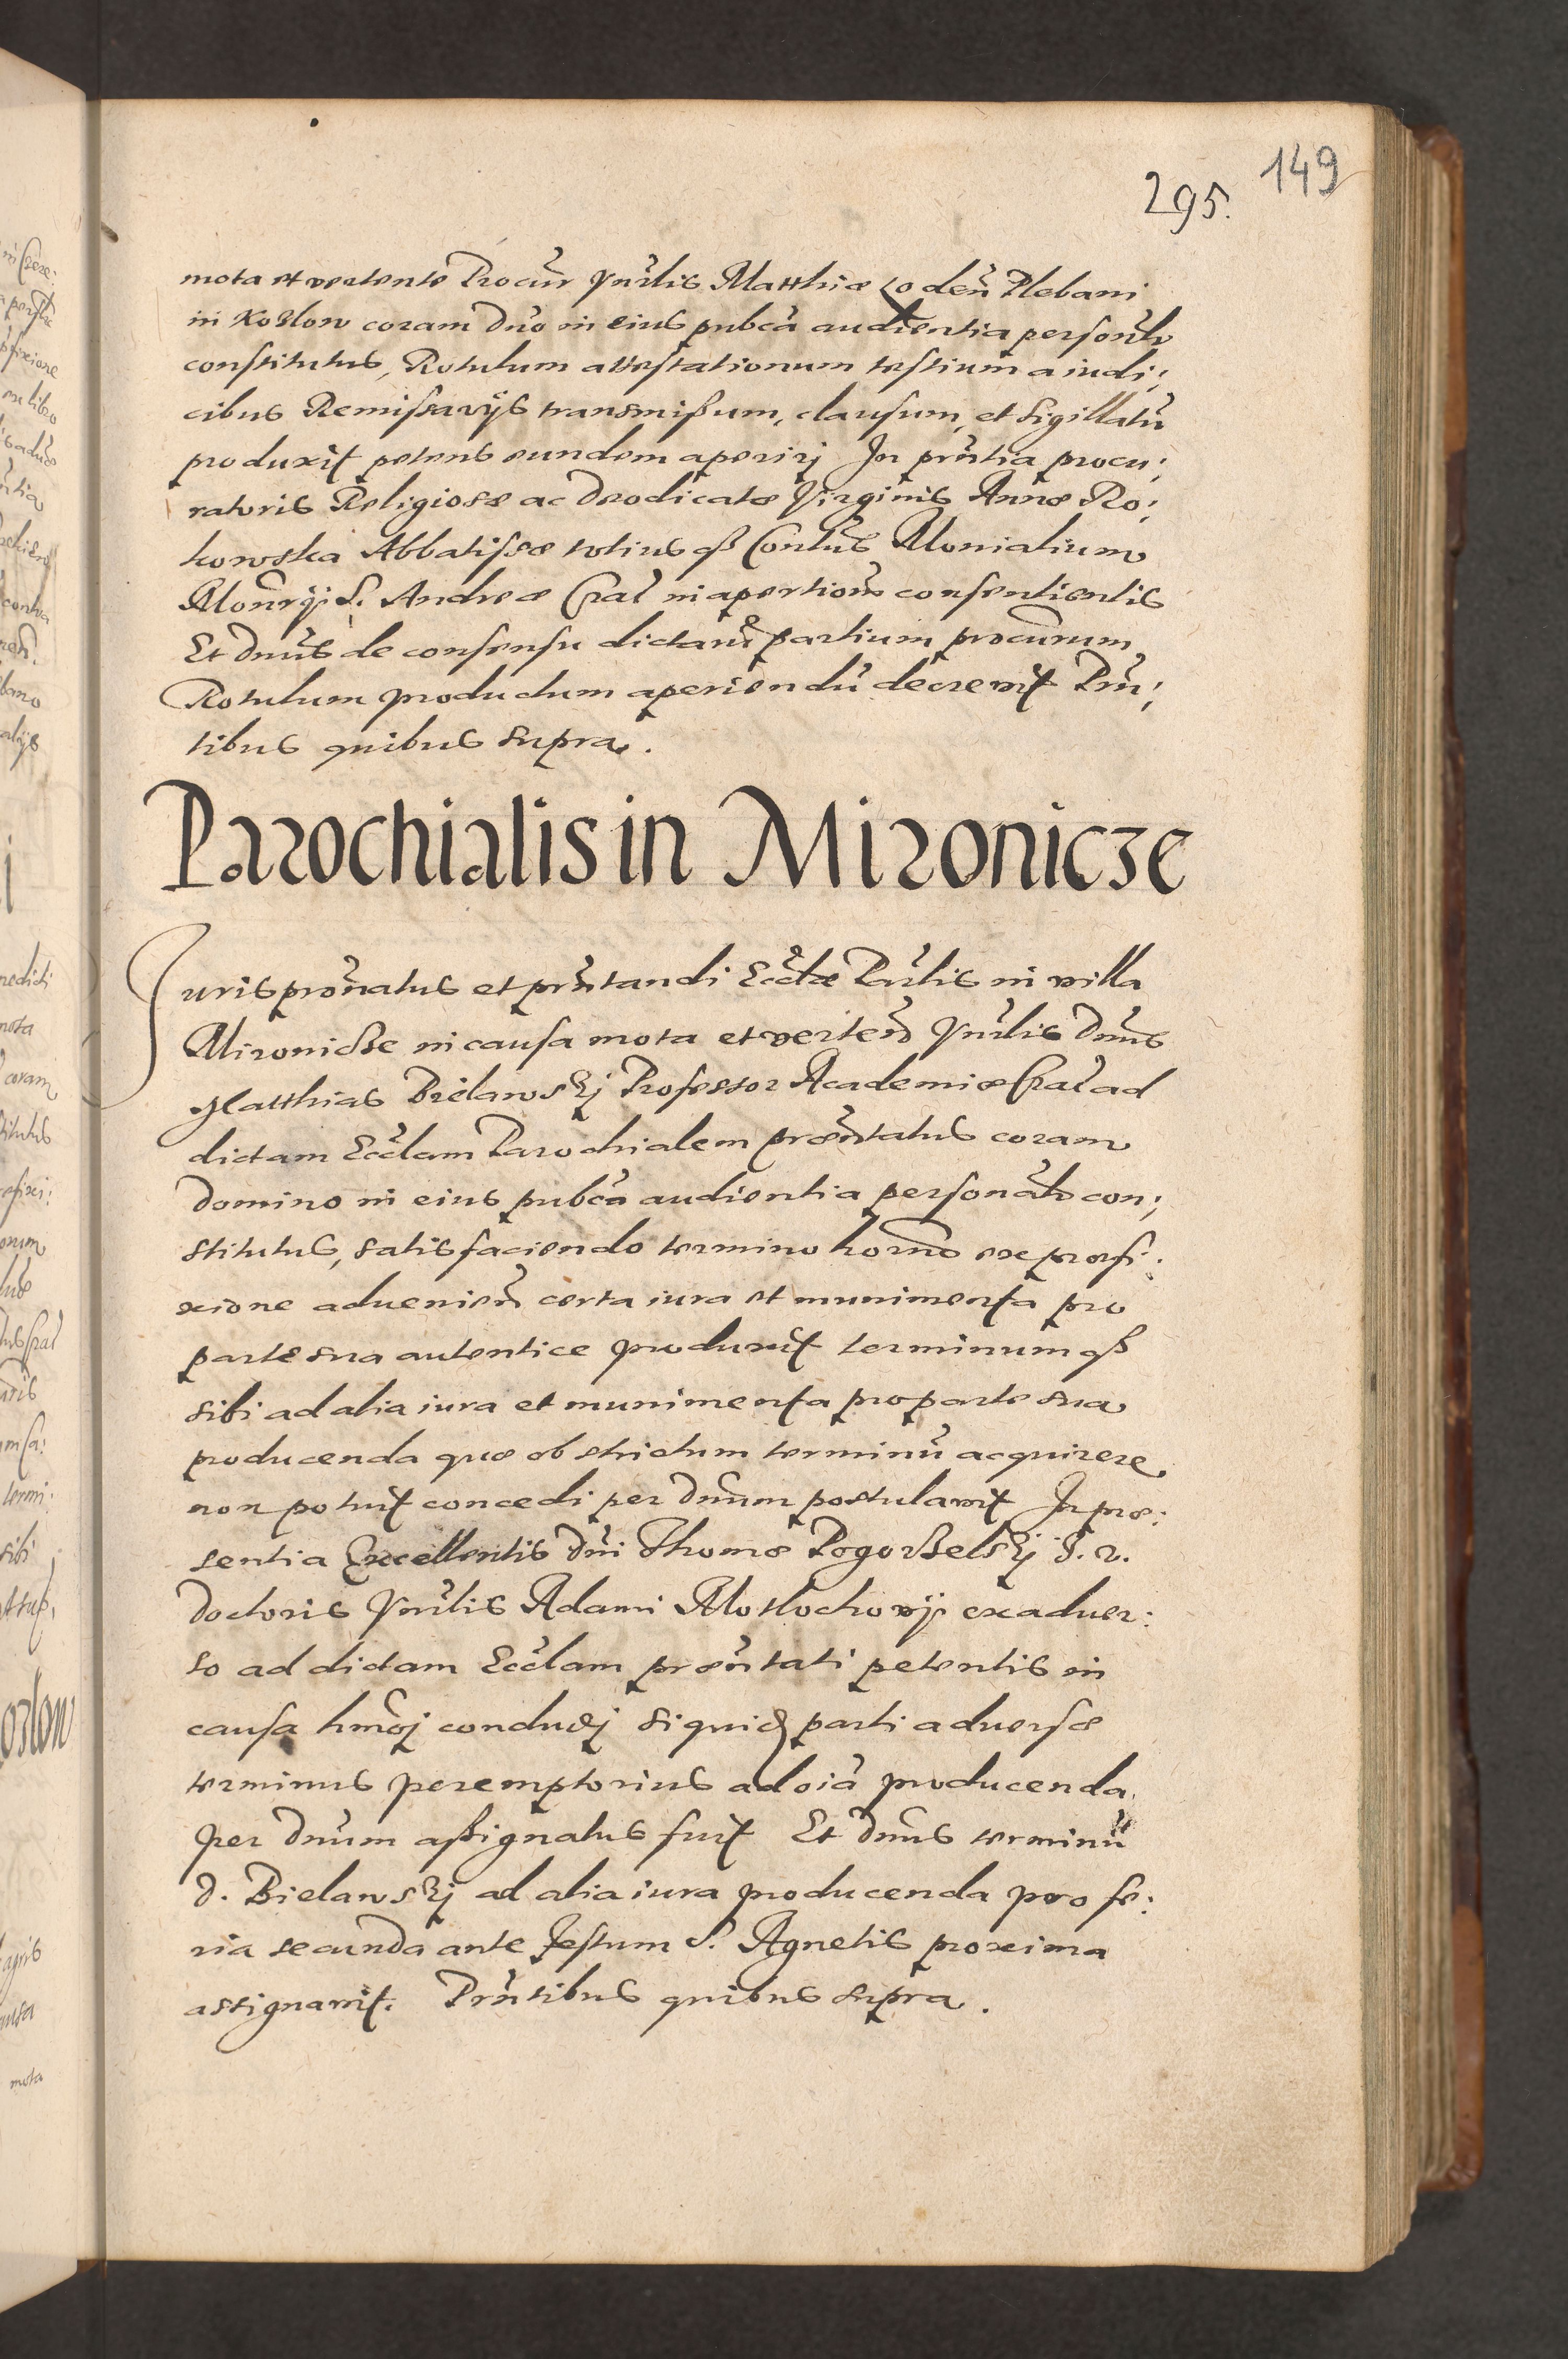 149
295.
mota et vertente Procur Vnrlis Matthiæ eo den Plebani
in Kozlow coram dno in eius pubca audientia personlr
constitutus, Rotulum attestationum testium a iudi:
cibus Remissarijs transmissum, clausum, et sigillatu
produxit petens eundem aperirj In prntia procu:
ratoris Religiosæ ac deodicatæ Virginis Annæ Ro:
kowska Abbatissæ totius qz Conlus Monialium
Monrij S. Andreæ Crac in apertione consentientis
Et dnus de consensu dictaru partium procurum
Rotulum productum aperiendu decrevit Prn:
tibus quibus supra.
Parochialis in Mironicze
Juris pronatus et prntandi Ecclæ Parlis in villa
Mironicze in causa mota et verten Vnrlis Dnus
Matthias Bielawskj Professor Academiæ Crac ad
dictam Ecclam Parochialem præntatus coram
domino in eius pubca audientia personalr con:
stitutus, satisfaciendo termino horno ex præfi:
xione aduenien certa iura et munimenta pro
parte sua autentice produxit terminum qz
sibi ad alia iura et munimenta pro parte sua
producenda quæ ob strictum terminu acquirere
non potuit concedi per dnum postulavit In præ:
sentia Excellentis dni Thomæ Pogorzelskj J. V.
doctoris Vnrlis Adami Moslochowij ex aduer:
so ad dictam Ecclam præntati petentis in
causa hmoj concludj siquid parti aduersæ
terminus peremptorius ad oia producenda
per dnum assignatus fuit Et dnus terminu
D. Bielawskj ad alia iura producenda pro fe:
ria secunda ante festum S. Agnetis proxima
assignavit. Prntibus quibus supra.